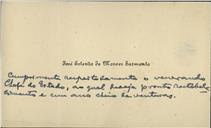 José Setenta de Moraes Sarmento
Cumprimenta respeitosamente o venerando
Chefe do Estado, ao qual deseja pronto restabele-
cimento e um ano cheio de venturas.